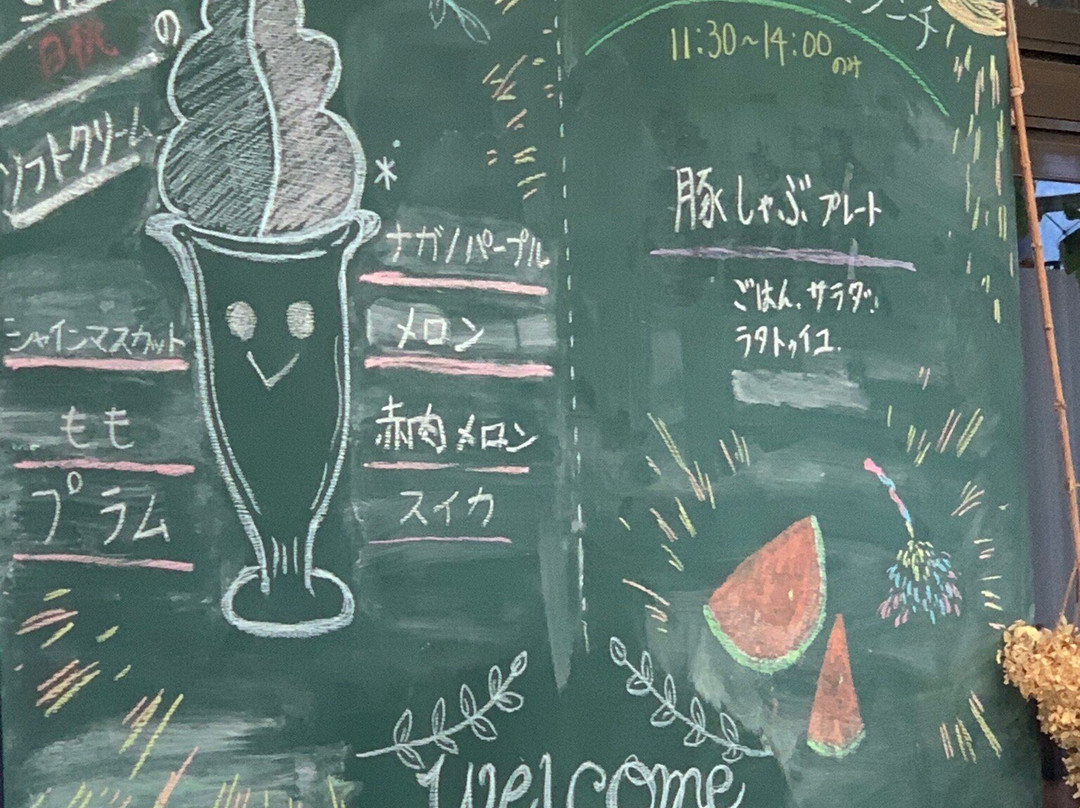 白桃の
ソフトクリーム
ナガノパープル
シャインマスカット
メロン
もも
赤肉メロン
プラム
スイカ
ランチ
11:30~14:00
のみ
豚しゃぶプレート
ごはん、サラダ、
ラタトゥイユ、
welcome